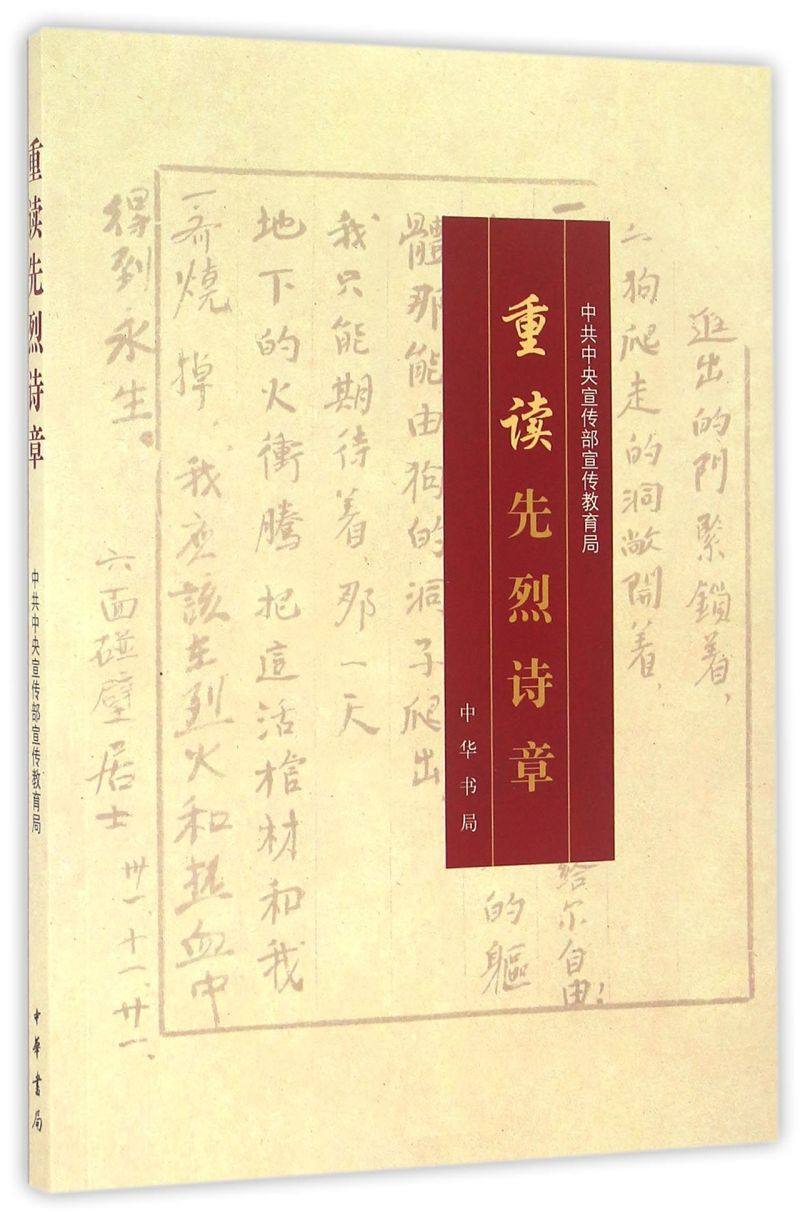 重读先烈诗章
中共中央宣传部宣传教育局
中華書局
中共中央宣传部宣传教育局
重读先烈诗章
中华书局
出的門緊鎖着,
狗爬走的洞敞開着,
一
給尔自由!
的軀
體那能由狗的洞子爬出,
我只能期待着,那一天
地下的火衝騰把這活棺材和我
一齐燒掉,我应該在烈火和热血中
得到永生。
六面碰壁居士
卅一、十一、廿一、